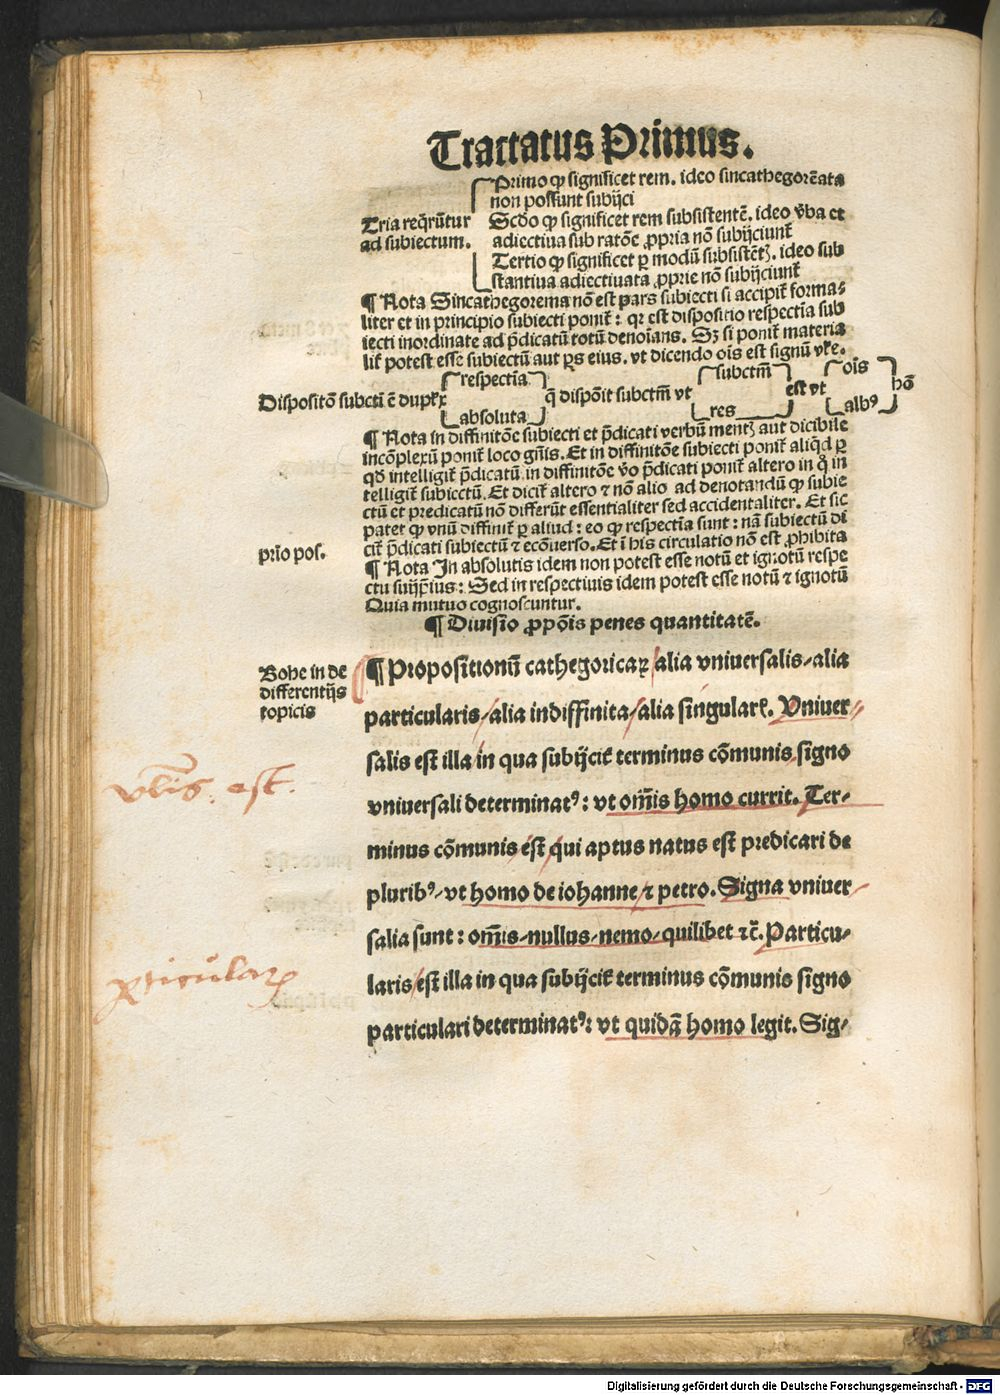 Tractatus Primus.
Primo ꝙ significet rem. ideo sincathegorēata
non possunt subijci
Tria reqͥrūtur
ad subiectum.
Scdo ꝙ significet rem subsistentē. ideo v̄ba et
adiectiua sub ratōe ꝓpria nō subijciunt̄
Tertio ꝙ significet ꝑ modū subsistētꝭ. ideo sub
stantiua adiectiuata ꝓprie nō subijciunt̄
¶ Nota Sincathegorema nō est pars subiecti si accipit̄ forma⸗
liter et in principio subiecti ponit̄: qꝛ est dispositio respectīa sub
iecti inordinate ad p̄dicatū totū denoīans. Sꝫ si ponit̄ materia
lit̄ potest esse subiectū aut ꝑs eius. vt dicendo oīs est signū vl̄e.
respectīa
absoluta
Dispositō subcti ē duplꝛ
q̄ dispōit subctm̄ vt
subctm̄
res
est vt
oīs
albꝰ
hō
¶ Nota in diffinitōe subiecti et p̄dicati verbū mentꝭ aut dicibile
incōplexū ponit̄ loco gn̄is. Et in diffinitōe subiecti ponit̄ aliqͥd ꝑ
qđ intelligit̄ p̄dicatū in diffinitōe v̄o p̄dicati ponit̄ altero in q̄ in
telligit̄ subiectū. Et dicit̄ altero ⁊ nō alio ad denotandū ꝙ subie
ctū et predicatū nō differūt essentialiter sed accidentaliter. Et sic
patet ꝙ vnū diffinit̄ ꝑ aliud: eo ꝙ respectīa sunt: nā subiectū di
cit̄ p̄dicati subiectū ⁊ ecōuerso. Et ī his circulatio nō est ꝓhibita
prīo pos.
¶ Nota In absolutis idem non potest esse notū et ignotū respe
ctu suijp̄ius: Sed in respectiuis idem potest esse notū ⁊ ignotū
Quia mutuo cognoscuntur.
¶ Diuisīo ꝓpōis penes quantitatē.
Bohe in de
differentijs
topicis
¶ Propositionū cathegoricaꝝ alia vniuersalis⸗alia
particularis⸗alia indiffinita⸗alia singularꝭ. Vniuer⸗
salis est illa in qua subijcit̄ terminus cōmunis signo
vl̄is. est.
vniuersali determinatꝰ: vt om̄is homo currit. Ter⸗
minus cōmunis est qui aptus natus est predicari de
pluribꝰ⸗vt homo de iohanne ⁊ petro. Signa vniuer⸗
salia sunt: om̄is⸗nullus⸗nemo⸗quilibet ⁊c̄. Particu⸗
ꝑticularꝭ
laris est illa in qua subijcit̄ terminus cōmunis signo
particulari determinatꝰ: vt quidā homo legit. Sig⸗
Digitalisierung gefördert durch die Deutsche Forschungsgemeinschaft - DFG